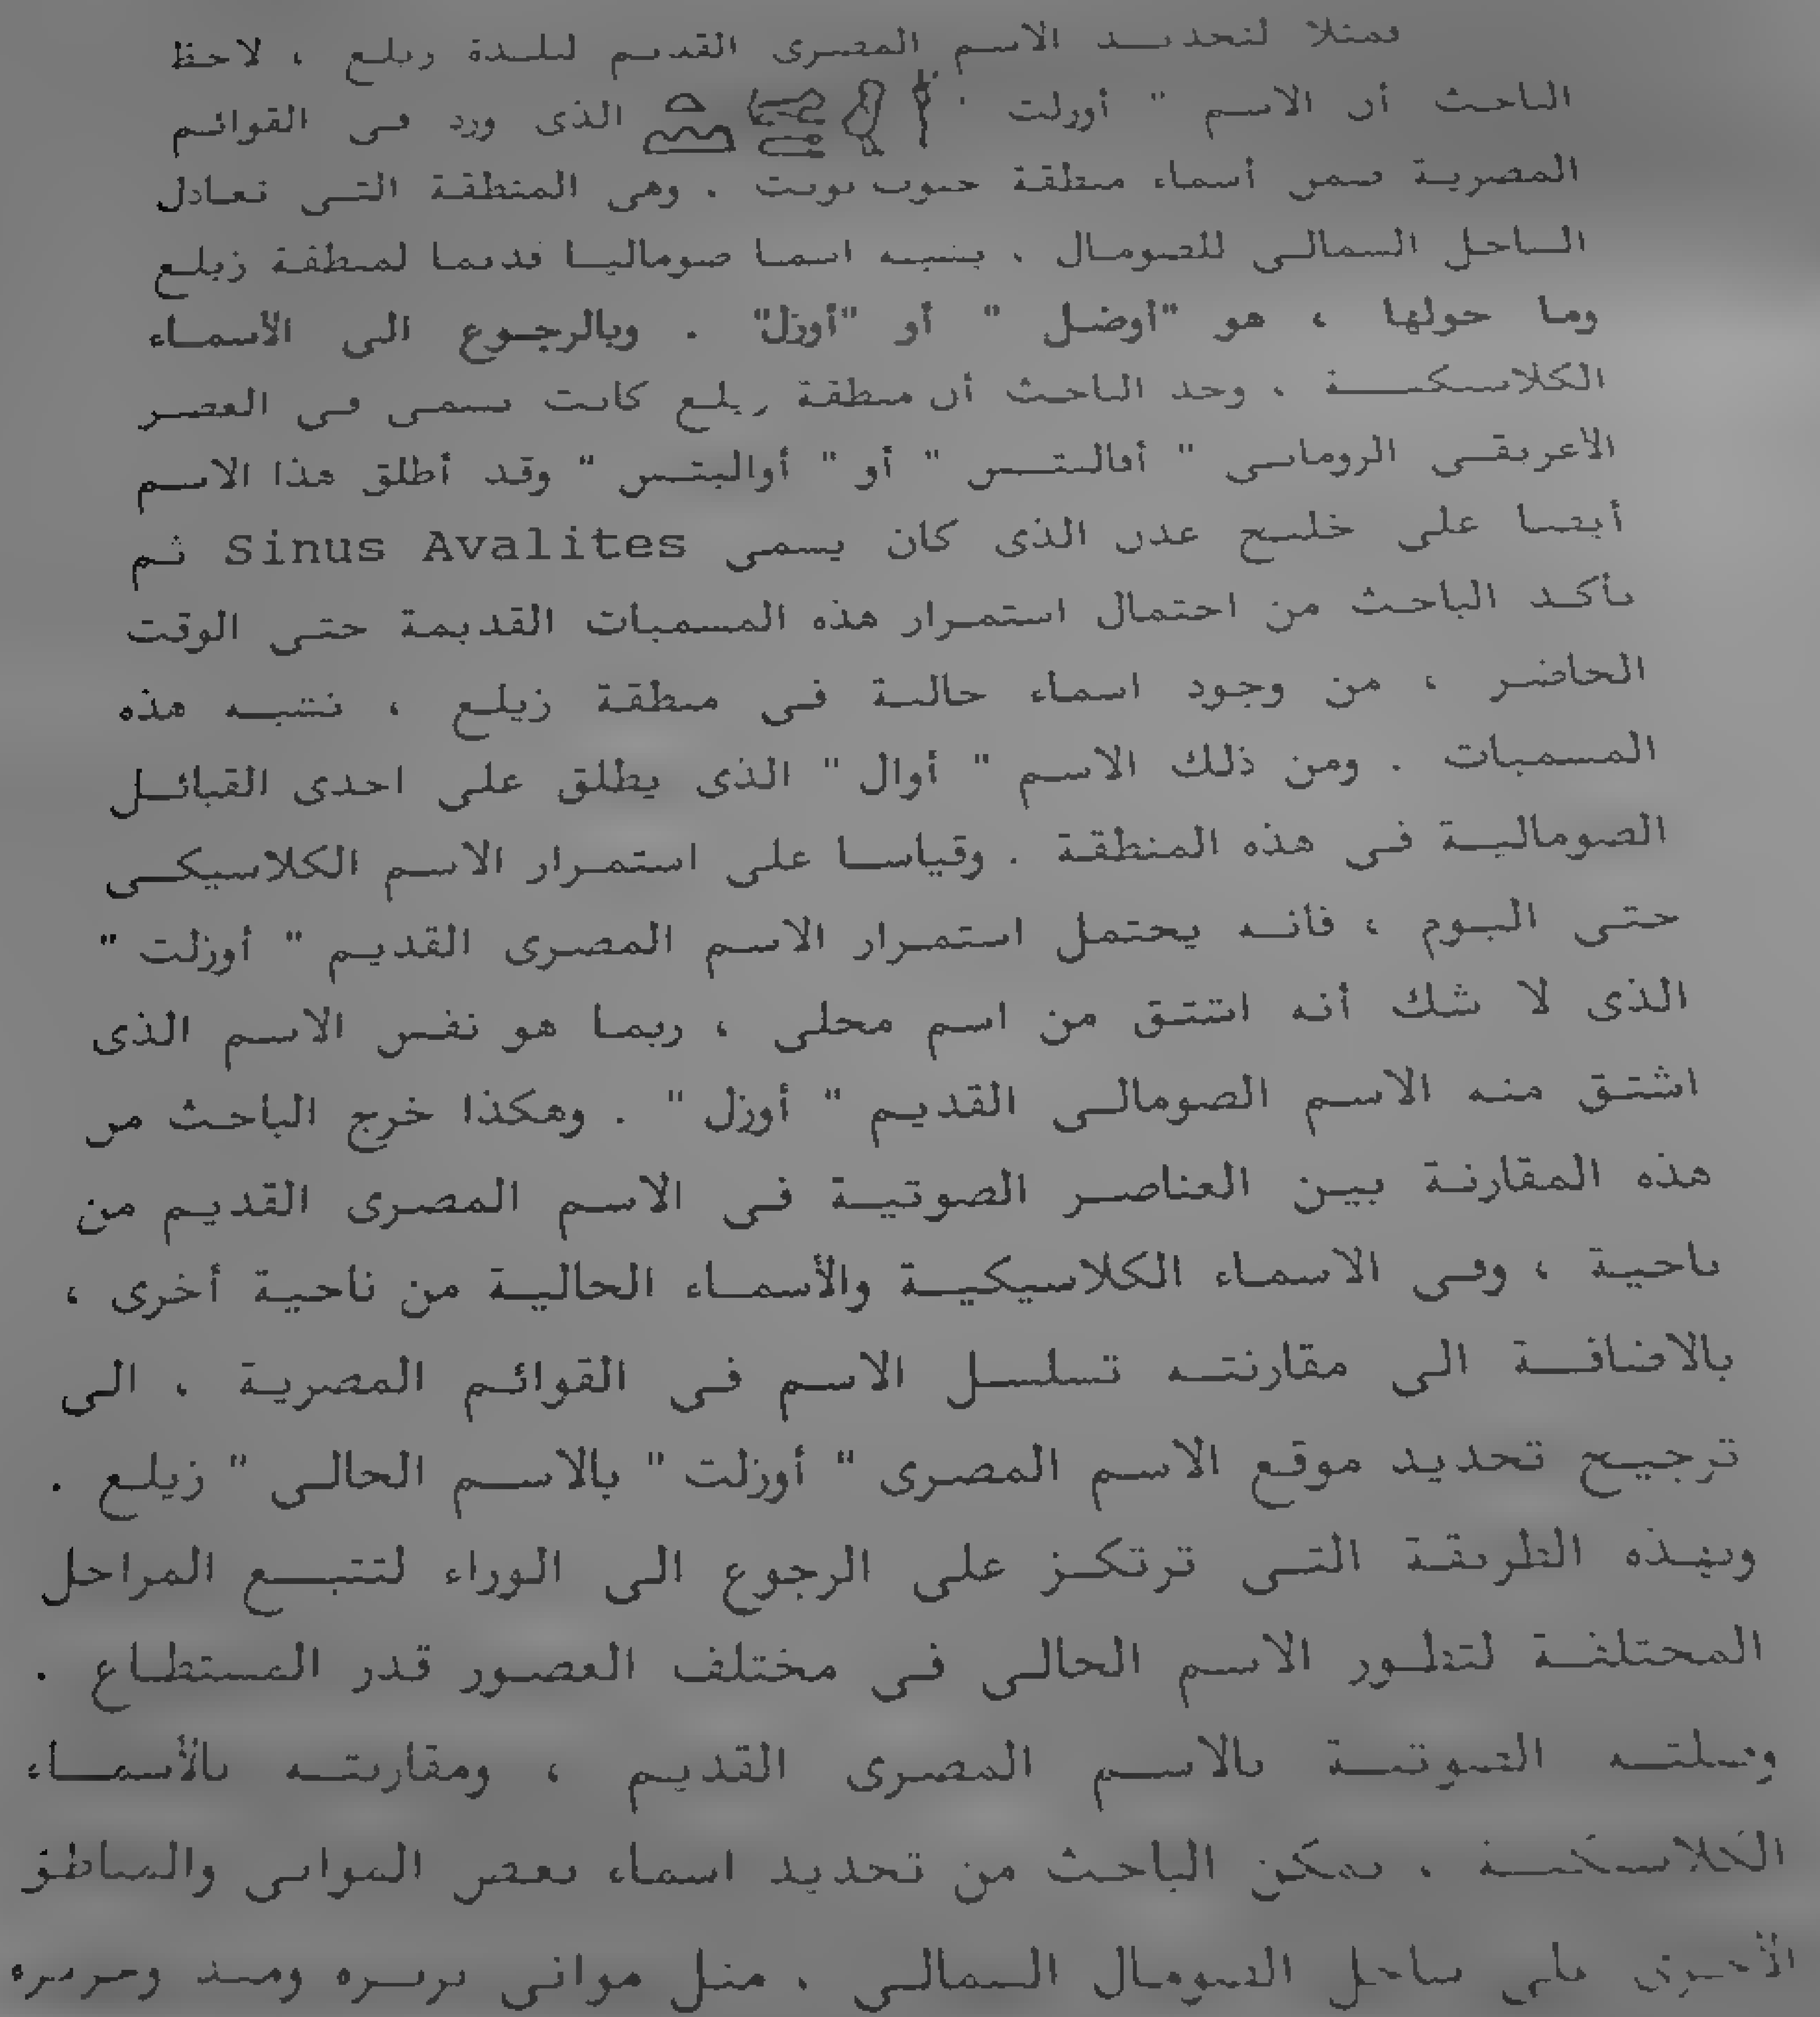 فمثلا لتحديد الاسم المصرى القديم لبلدة زيلع ، لاحظ
الباحث أن الاسم " أوزلت " الذى ورد فى القوائم
المصرية ضمن أسماء منطقة جنوب بونت . وهى المنطقة التى تعادل
الساحل الشمالى للصومال ، يشبه اسما صوماليا قديما لمنطقة زيلع
وما حولها ، هو "أوضل " أو "أوزل" . وبالرجوع الى الأسماء
الكلاسيكية ، وجد الباحث أن منطقة زيلع كانت تسمى فى العصر
الاغريقى الرومانى " أفاليتس " أو " أواليتس " وقد أطلق هذا الاسم
أيضا على خليج عدن الذى كان يسمى Sinus Avalites ثم
تأكد الباحث من احتمال استمرار هذه المسميات القديمة حتى الوقت
الحاضر ، من وجود اسماء حالية فى منطقة زيلع ، تشبه هذه
المسميات . ومن ذلك الاسم " أوال " الذى يطلق على احدى القبائل
الصومالية فى هذه المنطقة . وقياسا على استمرار الاسم الكلاسيكى
حتى اليوم ، فانه يحتمل استمرار الاسم المصرى القديم " أوزلت "
الذى لا شك أنه اشتق من اسم محلى ، ربما هو نفس الاسم الذى
اشتق منه الاسم الصومالى القديم " أوزل " . وهكذا خرج الباحث من
هذه المقارنة بين العناصر الصوتية فى الاسم المصرى القديم من
ناحية ، وفى الاسماء الكلاسيكية والأسماء الحالية من ناحية أخرى ،
بالاضافة الى مقارنته تسلسل الاسم فى القوائم المصرية ، الى
ترجيح تحديد موقع الاسم المصرى " أوزلت " بالاسم الحالى " زيلع .
وبهذه الطريقة التى ترتكز على الرجوع الى الوراء لتتبع المراحل
المختلفة لتطور الاسم الحالى فى مختلف العصور قدر المستطاع .
وصلته الصوتية بالاسم المصرى القديم ، ومقارنته بالأسماء
الكلاسيكية ، تمكن الباحث من تحديد اسماء بعض الموانى والمناطق
الأخرى على ساحل الصومال الشمالى ، مثل موانى بربره